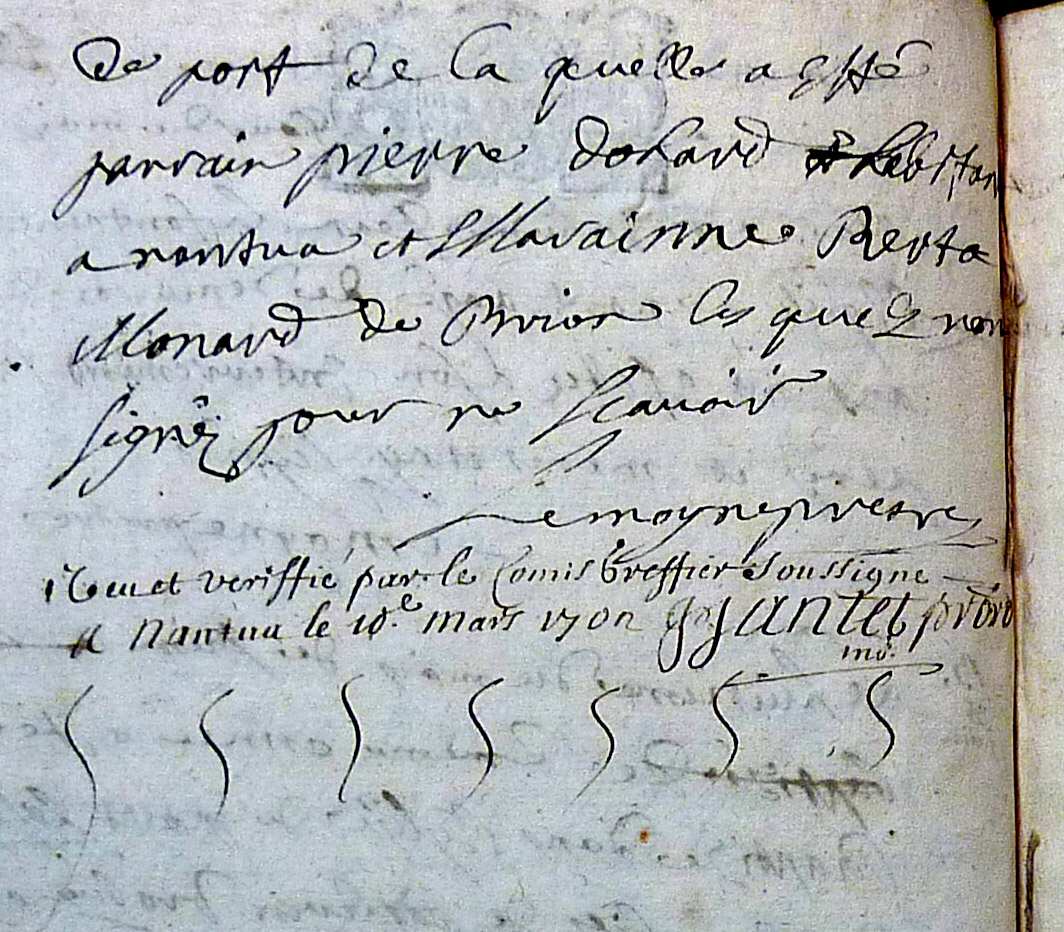 de port de la quelle a esté
parrain pierre dohard habitan
a nantua et Marainne Berta
Monard de Brion les quels non
signéz pour ne scavoir
Lemoyne prestre
Veu et veriffié par le Comis Greffier soussigne
A Nantua le 10.e mars 1702 Jantet